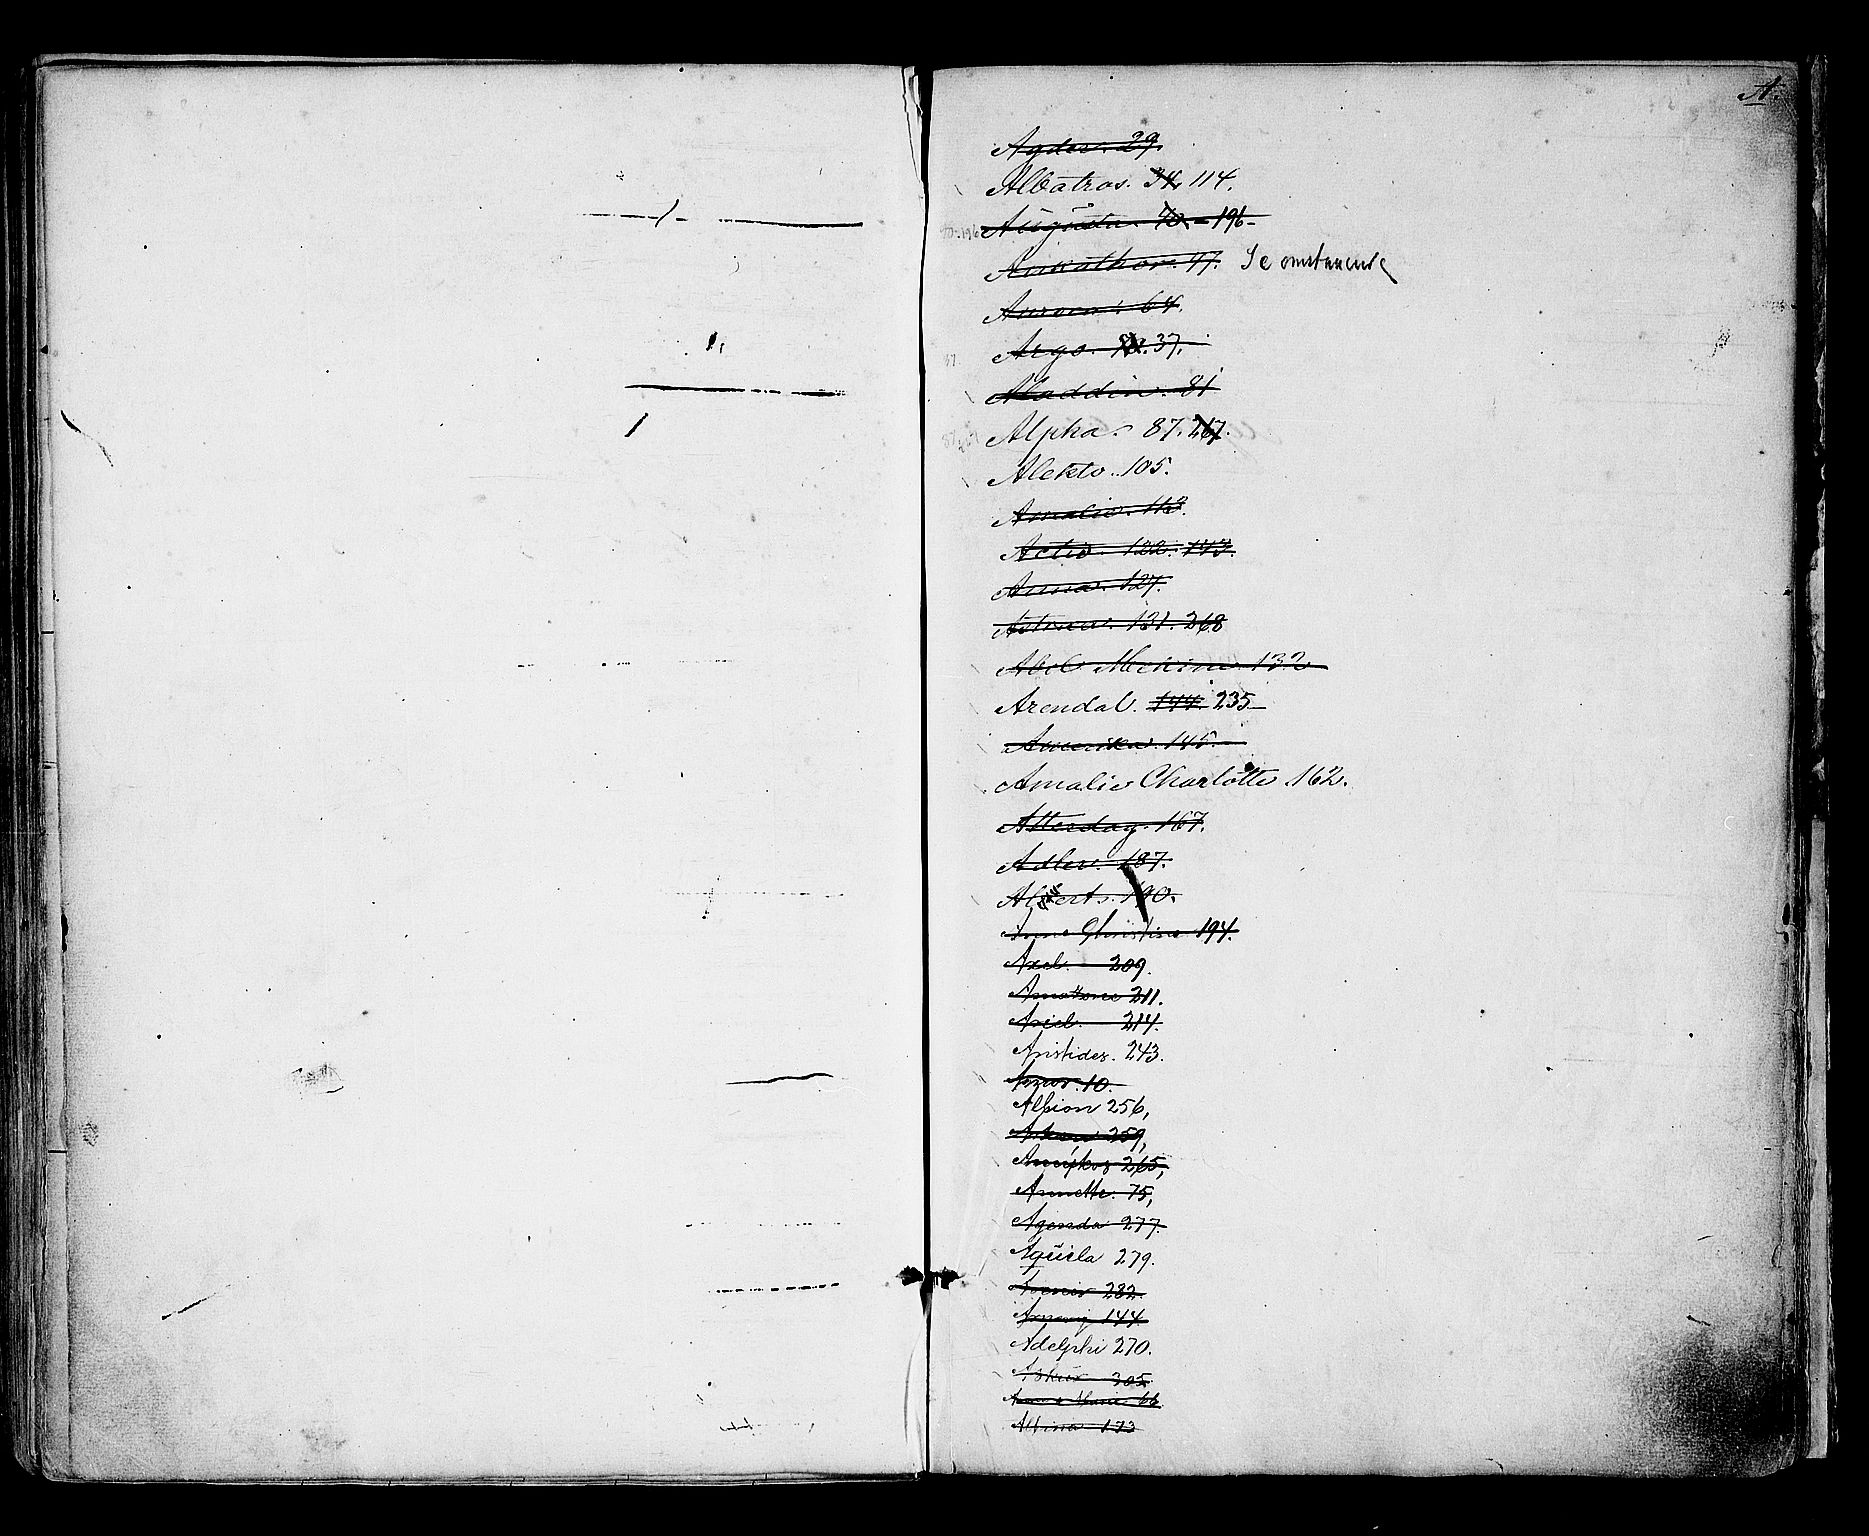 A.
Agder. 29.
Albatros. 34. 114.
Augusta. 40. - 196-
47. Se omstaaende
Aurora. 64.
Argo. 37.
Aladdin. 81
Alpha. 87. 267.
Alekto. 105.
Amalie. 113.
Activ. 122. 143.
Anna. 127.
Astræa. 131. 268
Abel 132
Arendal. 144. 235-
Amerika. 145.
Amalie Charlotte. 162.
Atterdag. 167.
Adler. 187.
Alberts. 190.
Anne Christine 194.
Axel. 209.
Amazone 211.
Ariel. 214.
Aristides. 243.
10.
Albion 256,
259,
265,
Annette. 75,
Agenda 277.
Aquila 279.
282.
144.
Adelphi 270.
305
Anne Marie 66
173